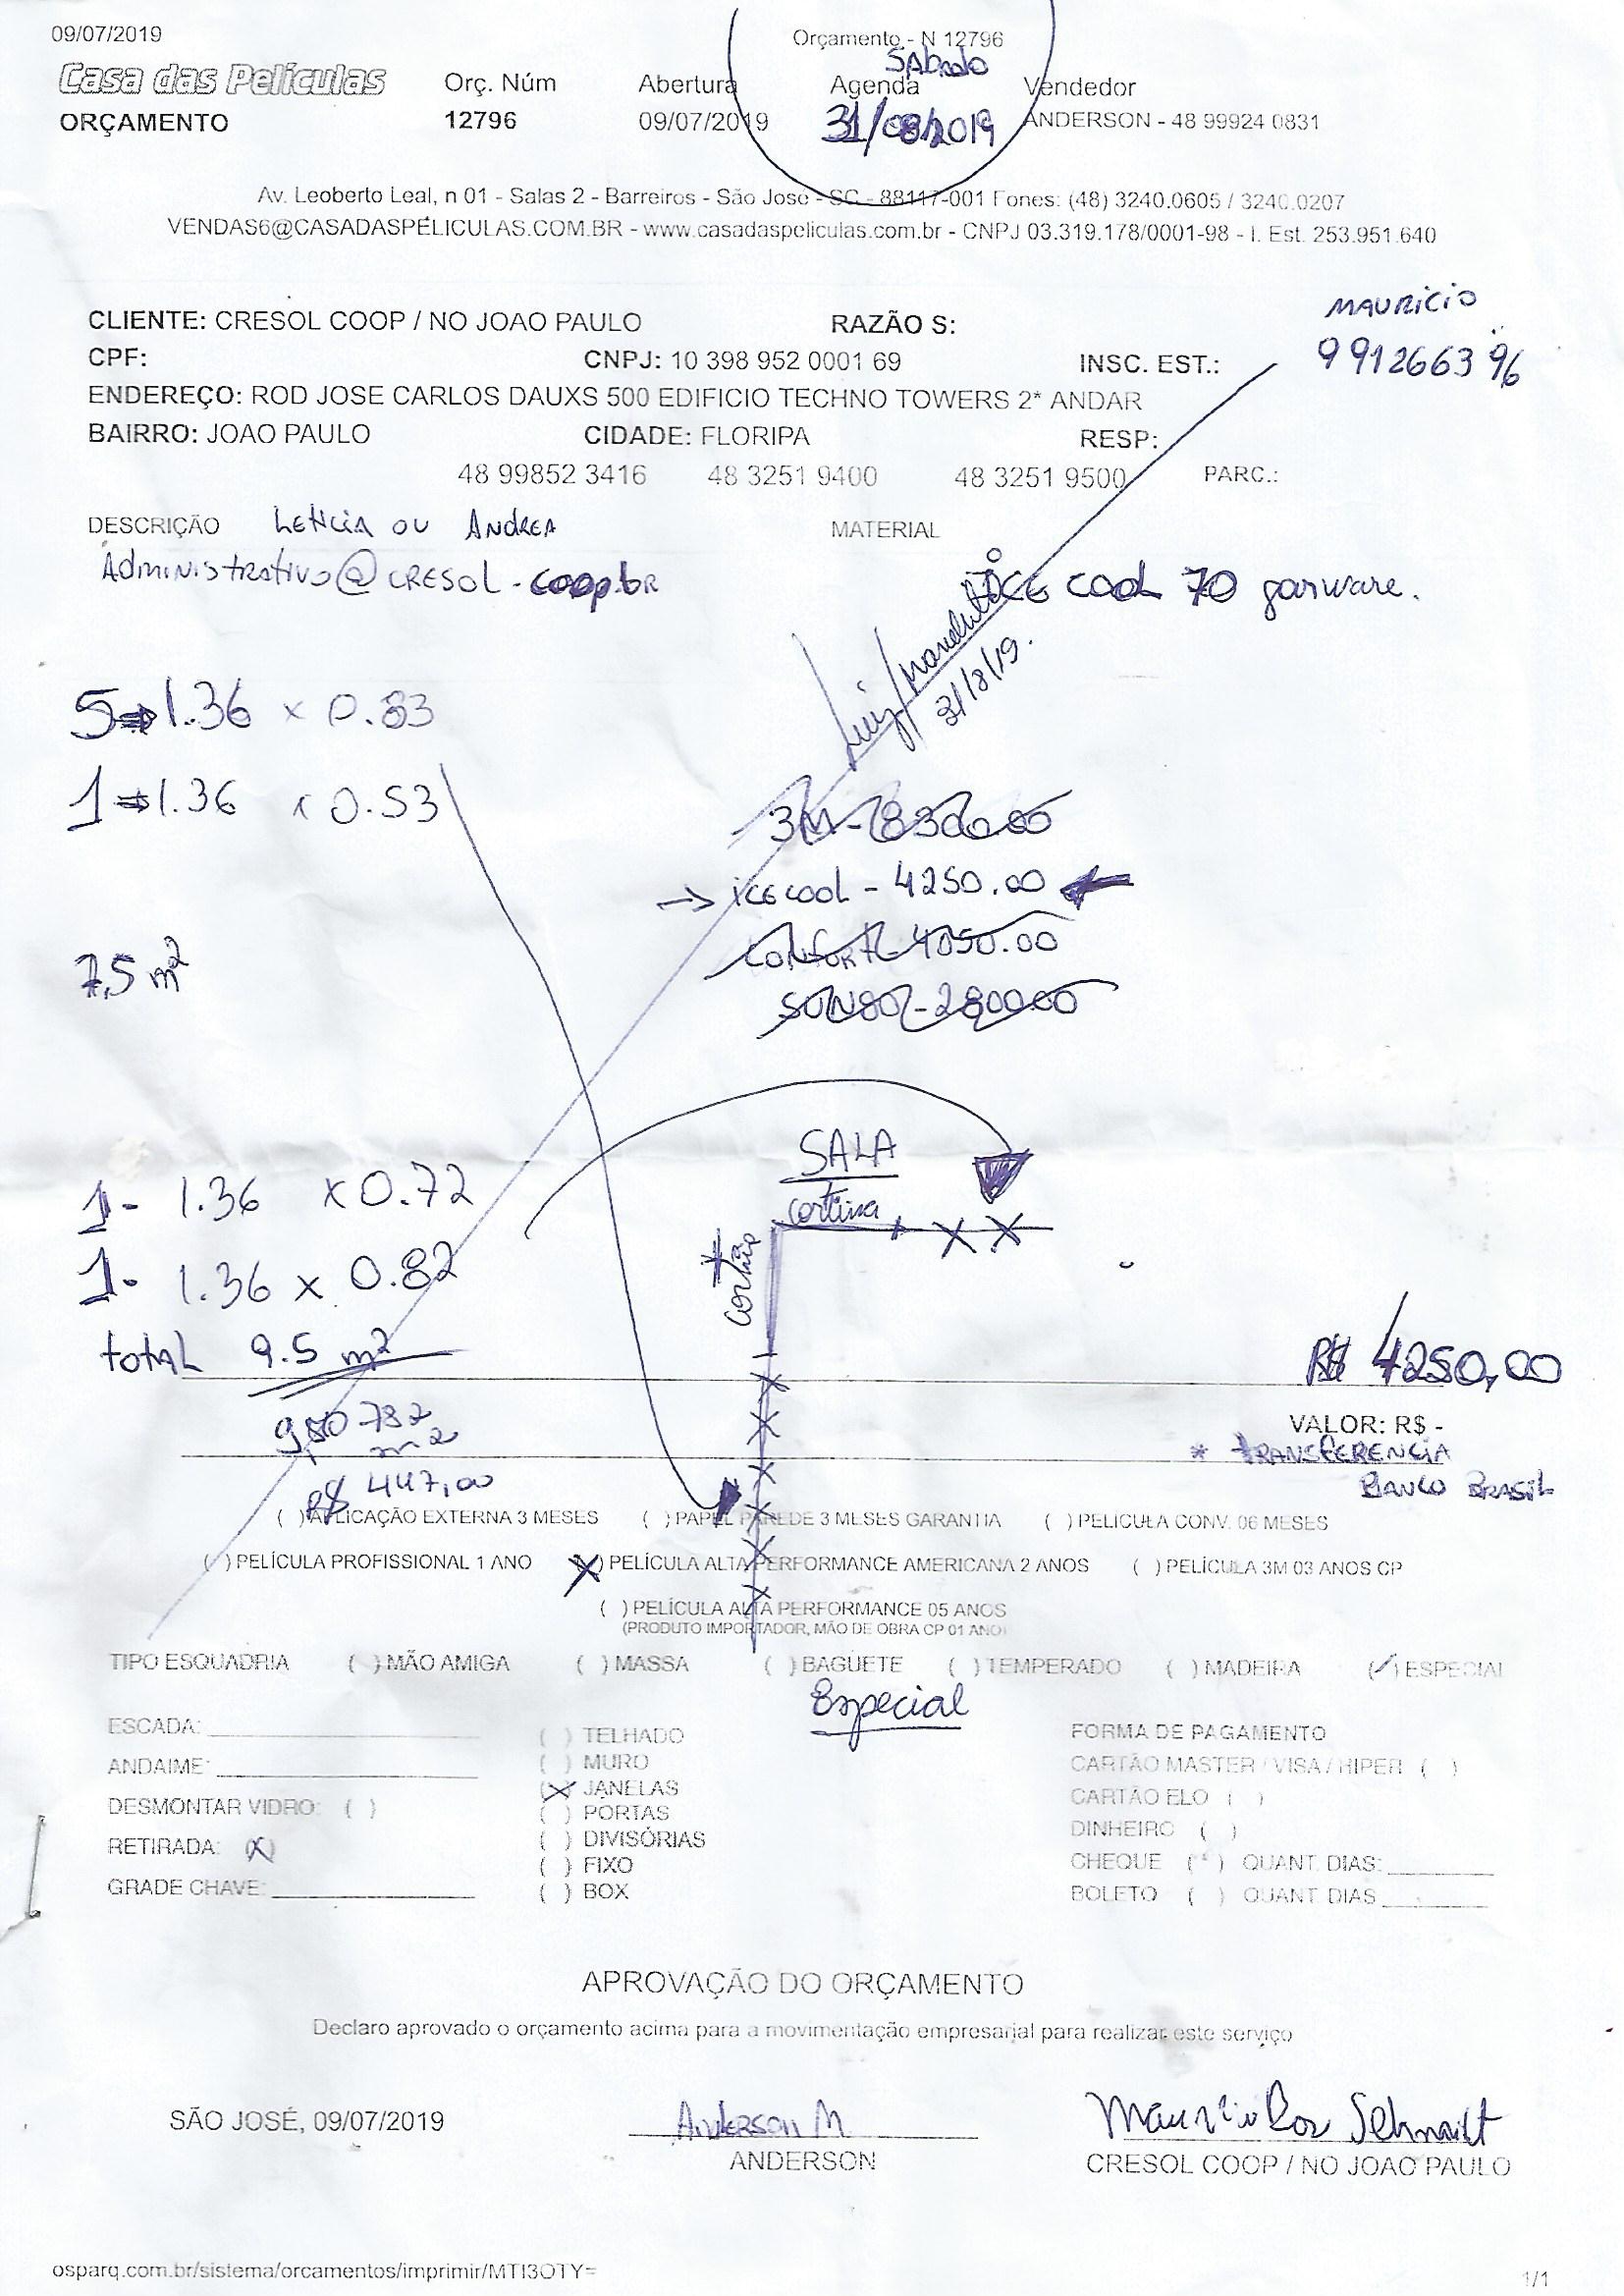 09/07/2019
Orçamento - N 12796
Casa das Películas
Orç. Núm
Abertura
Sábado
Agenda
Vendedor
ORÇAMENTO
12796
09/07/2019
31/08/2019
ANDERSON - 48 99924 0831
Av. Leoberto Leal, n 01 - Salas 2 - Barreiros - São José - SC - 88117-001 Fones: (48) 3240.0605 / 3240.0207
VENDAS6@CASADASPELICULAS.COM.BR - www.casadaspeliculas.com.br - CNPJ 03.319.178/0001-98 - I. Est. 253.951.640
MAURICIO
CLIENTE: CRESOL COOP / NO JOAO PAULO RAZÃO S:
CPF: CNPJ: 10 398 952 0001 69 INSC. EST.: 991266396
ENDEREÇO: ROD JOSE CARLOS DAUXS 500 EDIFICIO TECHNO TOWERS 2* ANDAR
BAIRRO: JOAO PAULO CIDADE: FLORIPA RESP:
48 99852 3416 48 3251 9400 48 3251 9500 PARC.:
DESCRIÇÃO LETICIA OU ANDREA MATERIAL
Administrativo@CRESOL.coop.br
ICE cool 70 garware.
31/8/19.
5⇒1.36 x 0.83
1⇒1.36 x 0.53
3M - 8300.00
→ ICE cool - 4250.00
CONFORT - 4050.00
7,5 m²
SUN80 - 2800.00
SALA
cortina
cortina
1- 1.36 x 0.72
1- 1.36 x 0.82
total 9.5 m²
R$ 4250,00
9,50782
m2
VALOR: R$ -
* TRANSFERENCIA
BANCO BRASIL
R$ 447,00
( ) APLICAÇÃO EXTERNA 3 MESES ( ) PAPEL PAREDE 3 MESES GARANTIA ( ) PELÍCULA CONV. 06 MESES
( ) PELÍCULA PROFISSIONAL 1 ANO (X) PELÍCULA ALTA PERFORMANCE AMERICANA 2 ANOS ( ) PELÍCULA 3M 03 ANOS CP
( ) PELÍCULA ALTA PERFORMANCE 05 ANOS
(PRODUTO IMPORTADOR, MÃO DE OBRA CP 01 ANO)
TIPO ESQUADRIA ( ) MÃO AMIGA ( ) MASSA ( ) BAGUETE ( ) TEMPERADO ( ) MADEIRA (/) ESPECIAL
Especial
ESCADA:
ANDAIME:
DESMONTAR VIDRO: ( )
RETIRADA: (X)
GRADE CHAVE:
( ) TELHADO
( ) MURO
(X) JANELAS
( ) PORTAS
( ) DIVISÓRIAS
( ) FIXO
( ) BOX
FORMA DE PAGAMENTO
CARTÃO MASTER / VISA / HIPER ( )
CARTÃO ELO ( )
DINHEIRO ( )
CHEQUE ( ) QUANT. DIAS:
BOLETO ( ) QUANT. DIAS
APROVAÇÃO DO ORÇAMENTO
Declaro aprovado o orçamento acima para a movimentação empresarial para realizar este serviço
SÃO JOSÉ, 09/07/2019
Anderson M
ANDERSON
Mauricio Ros Schmidt
CRESOL COOP / NO JOAO PAULO
osparq.com.br/sistema/orcamentos/imprimir/MTI3OTY=
1/1